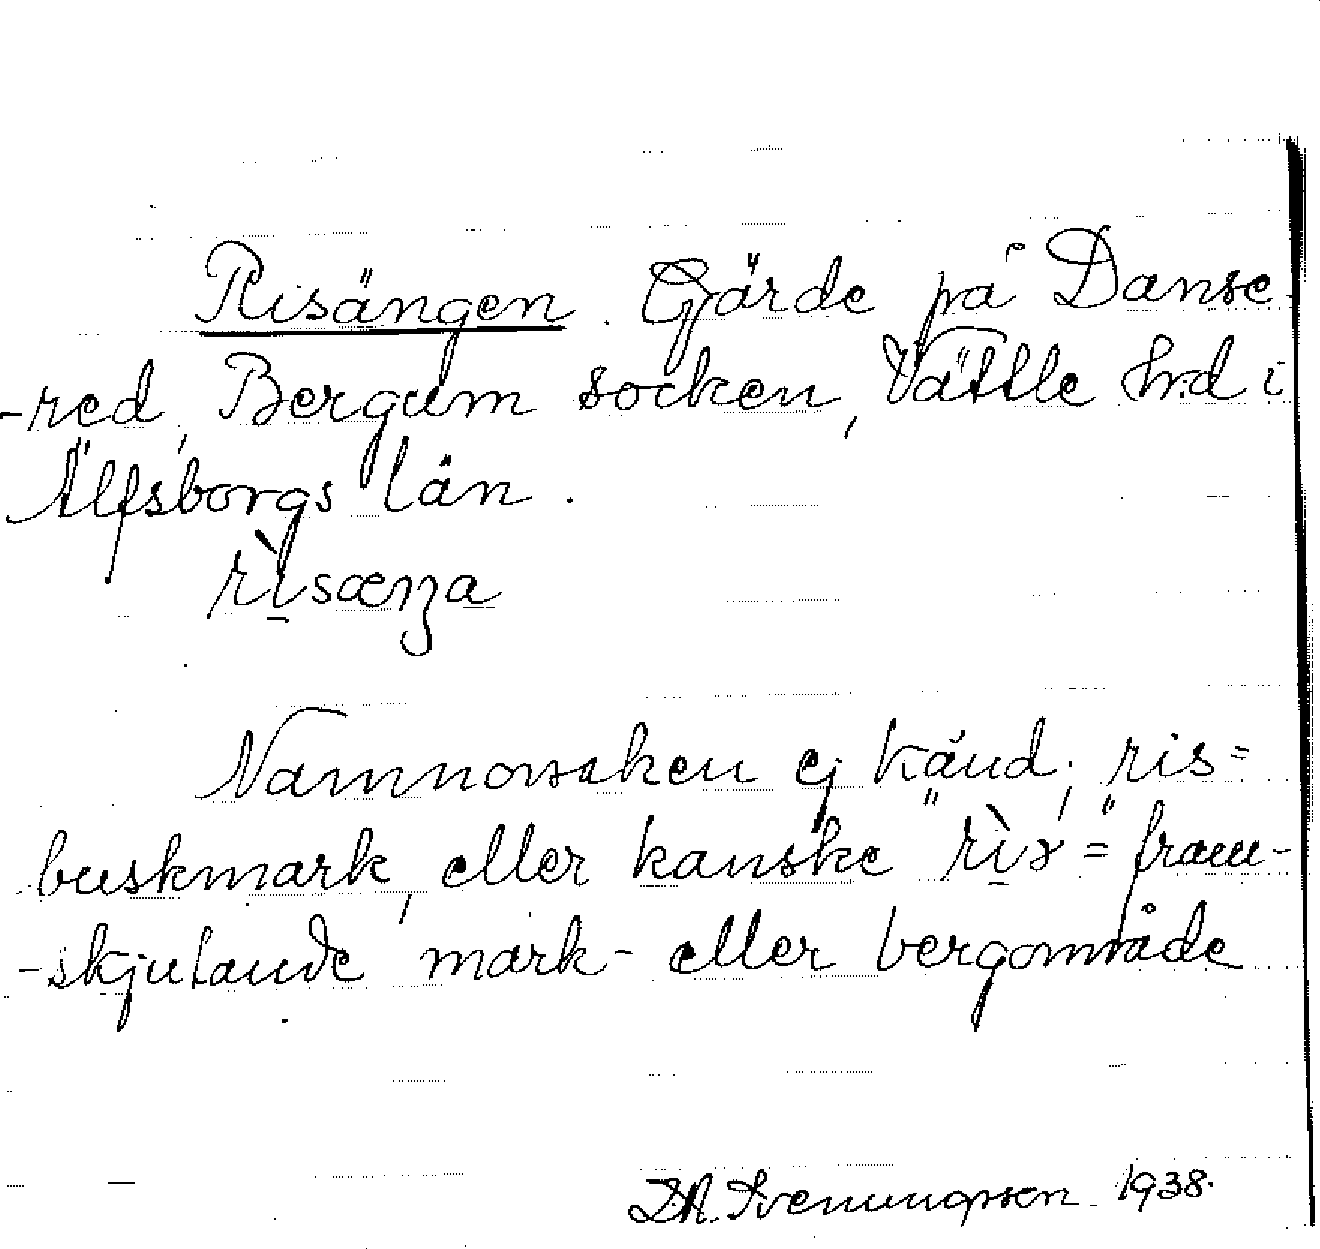 Risängen. Gärde på Danse
-red, Bergum socken, Vättle hrd i
Älfsborgs län.
rìsæŋa
Namnorsaken ej känd; ris=
buskmark, eller kanske "rìs" = fram-
-skjutande mark- eller bergområde
Svenungsson 1938.